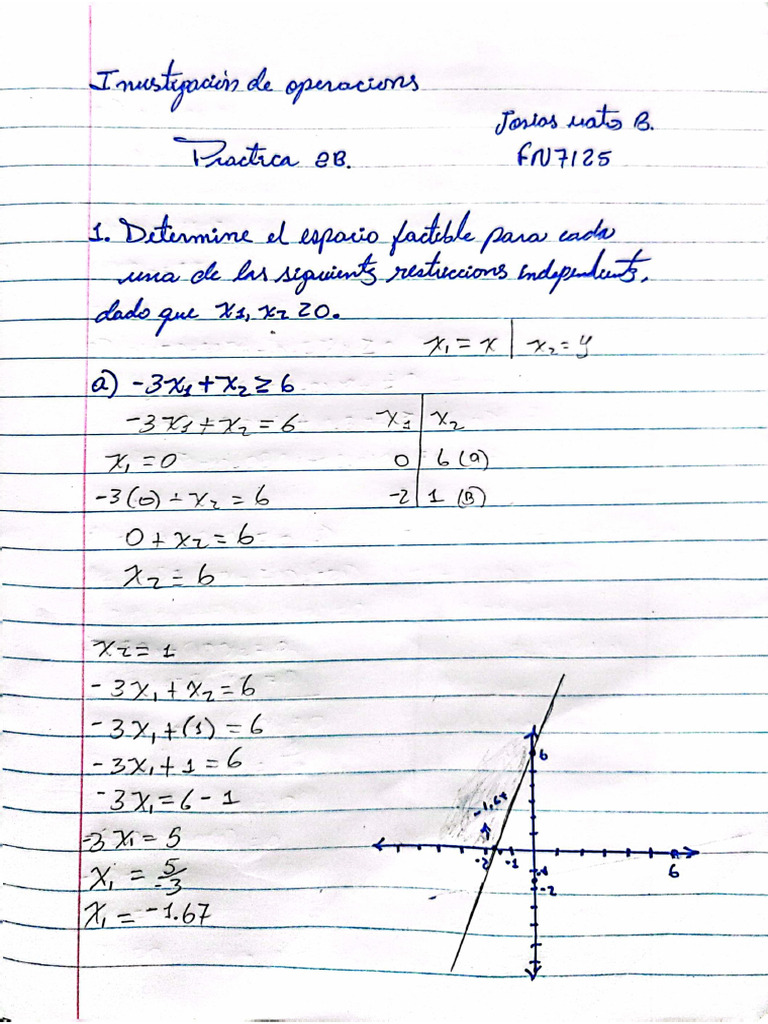 Investigación de operaciones
Josias Mats B.
Practica 2B.
FN7125
1. Determine el espacio factible para cada
una de las siguients restriccions independents,
dado que x1, x2 ≥ 0.
x₁ = x | x₂ = y
a) -3x1 + x2 ≥ 6
-3x1 + x2 = 6
x1 | x2
x1 = 0
0 | 6 (a)
-3(0) + x2 = 6
-2 | 1 (B)
0 + x2 = 6
x2 = 6
x2 = 1
-3x1 + x2 = 6
-3x1 + (1) = 6
-3x1 + 1 = 6
-3x1 = 6 - 1
-3x1 = 5
x1 = 5/-3
x1 = -1.67
6
-1.67
-2 -1
6
-1
-2